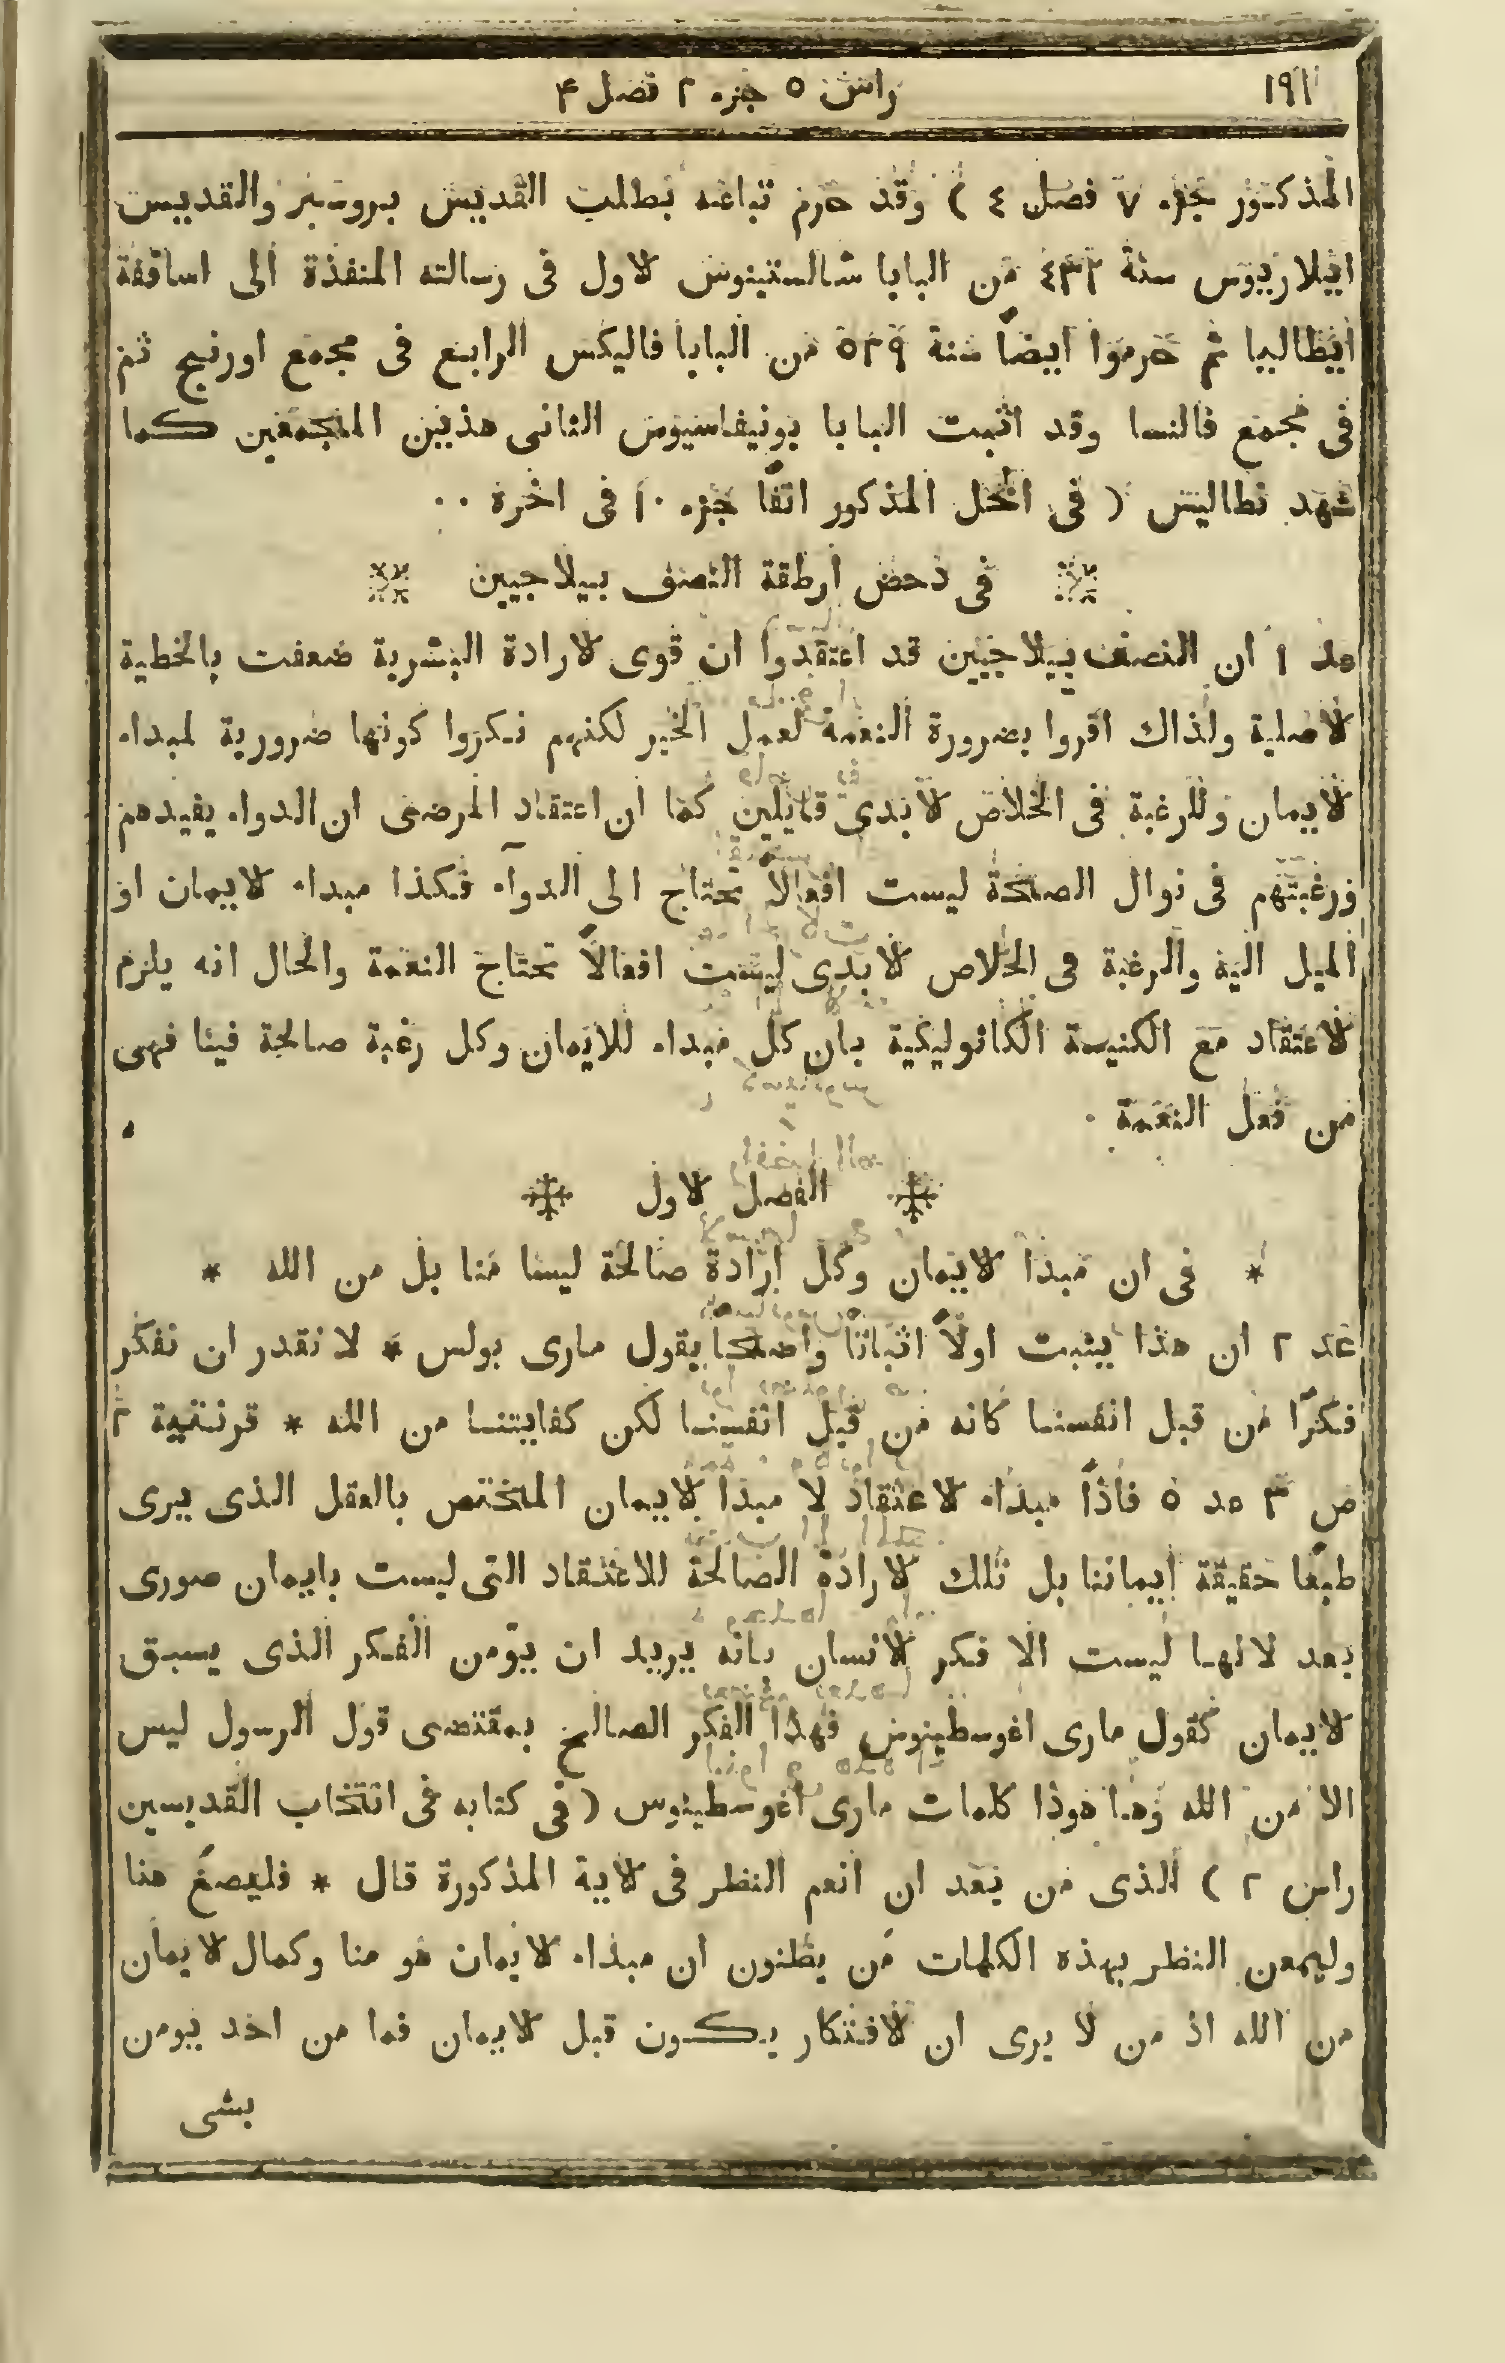 ١٩٢ راس ٥ جزء ٢ فصل ٤
المذكور جزء ٧ فصل ٤ ) وقد حرم تباعه بطلب القديس بروسبر والقديس
ايلاريوس سنة ٤٣٢ من البابا شالستينوس لاول فى رسالته المنفذة الى اساقفة
ايطاليا ثم حرموا ايضًا سنة ٥٢٩ من البابا فاليكس الرابع فى مجمع اورنج ثم
فى مجمع فالنسا وقد اثبت البابا بونيفاسيوس الثانى هذين المجمعين كما
شهد نطاليس ( فى المحل المذكور انفًا جزء ١٠ فى اخرة ٠٠
فى دحض ارطقة النصف بيلاجيين
عد ١ ان النصف بيلاجيين قد اعتقدوا ان قوى لارادة البشرية ضعفت بالخطية
لاصلية ولذاك اقروا بضرورة النعمة لعمل الخير لكنهم نكروا كونها ضرورية لمبداء
لايمان وللرغبة فى الخلاص لابدى قايلين كما ان اعتقاد المرضى ان الدواء يفيدهم
ورغبتهم فى نوال الصحة ليست افعالاً تحتاج الى الدوآء فكذا مبداء لايمان او
الميل اليه والرغبة فى الخلاص لابدى ليست افعالاً تحتاج النعمة والحال انه يلزم
لاعتقاد مع الكنيسة الكاثوليكية بان كل مبداء للايمان وكل رغبة صالحة فينا فهى
من فعل النعمة ٠
الفصل لاول
* فى ان مبدا لايمان وكل ارادة صالحة ليسا منا بل من الله *
عد ٢ ان هذا يثبت اولاً اثباتًا واضحا بقول مارى بولس * لا نقدر ان نفكر
فكرًا من قبل انفسنا كانه من قبل انفسنا لكن كفايتنا من الله * قرنتية ٢
ص ٣ عد ٥ فاذًا مبداء لاعتقاد لا مبدا لايمان المختص بالعقل الذى يرى
طبعًا حقيقة ايماننا بل تلك لارادة الصالحة للاعتقاد التى ليست بايمان صورى
بعد لانها ليست الا فكر لانسان بانه يريد ان يومن الفكر الذى يسبق
لايمان كقول مارى اغوسطينوس فهذا الفكر الصالح بمقتضى قول الرسول ليس
الا من الله وها هوذا كلمات مارى اغوسطينوس ( فى كتابه فى انتخاب القديسين
راس ٢ ) الذى من بعد ان انعم النظر فى لاية المذكورة قال * فليصغ هنا
وليمعن النظر بهذه الكلمات من يظنون ان مبداء لايمان هو منا وكمال لايمان
من الله اذ من لا يرى ان لافتكار يكون قبل لايمان فما من احد يومن
بشى